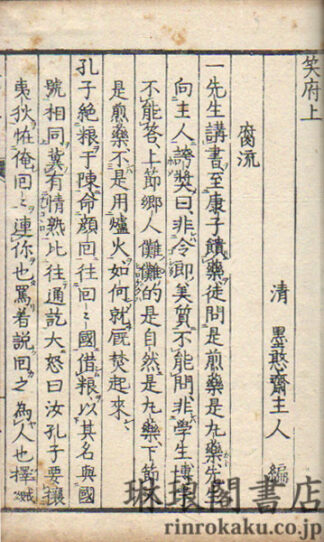 笑府上
清 墨憨齋主人 編
腐流
一先生講書至康子饋藥徒問是煎藥是丸藥先生
向主人誇奬曰非令郎美質不能問非學生博
不能答上節鄉人儺儺的是自然是丸藥下節
是煎藥不是用爐火如何就厩焚起來
孔子絶粮于陳命顔回往回々國借粮以其名與國
號相同冀有情熟比往通訖大怒曰汝孔子要攘
夷狄怪俺回々連你也罵着說回之爲人也擇賊
琳琅閣書店
rinrokaku.co.jp